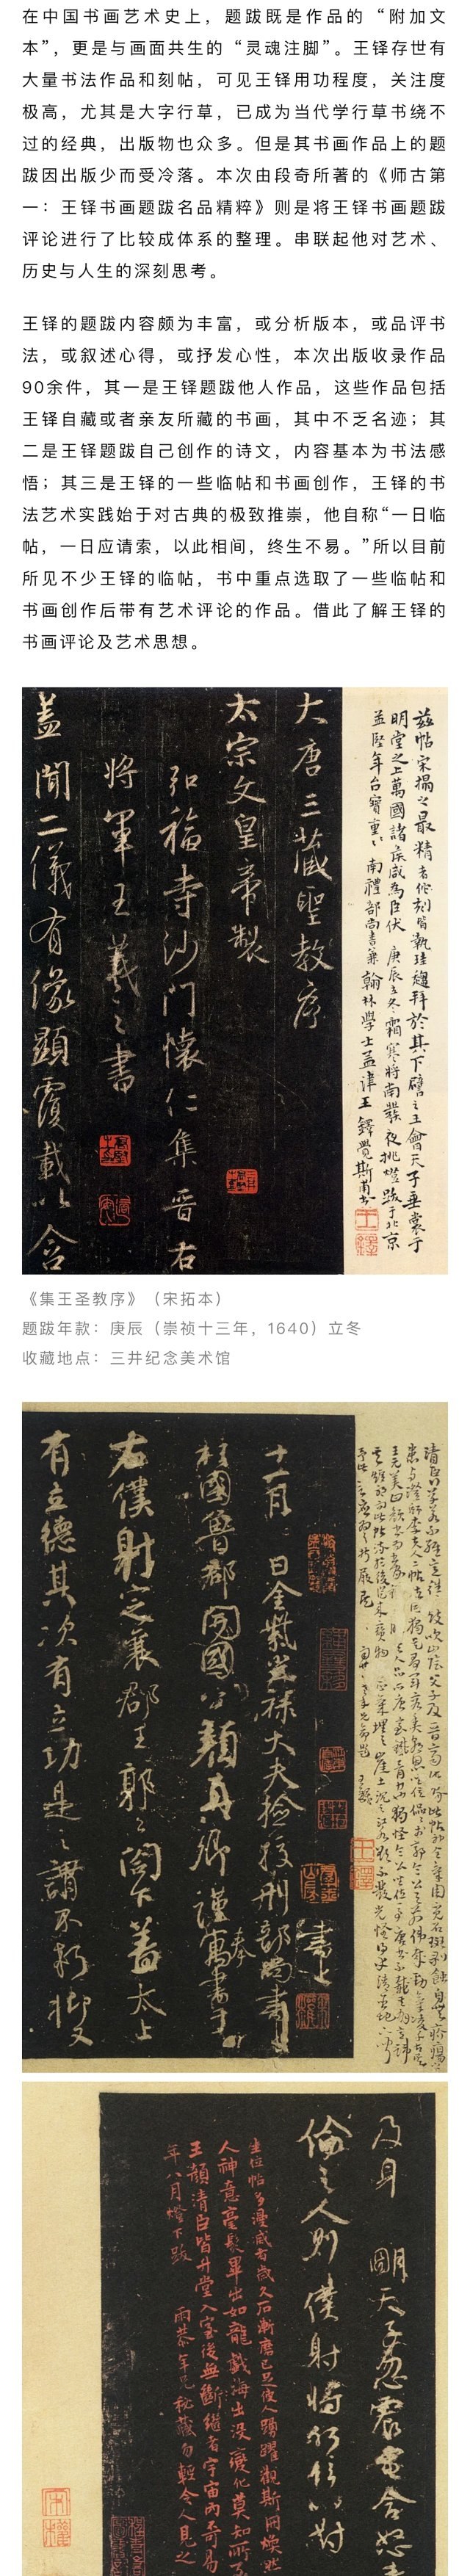 在中国书画艺术史上，题跋既是作品的“附加文
本”，更是与画面共生的“灵魂注脚”。王铎存世有
大量书法作品和刻帖，可见王铎用功程度，关注度
极高，尤其是大字行草，已成为当代学行草书绕不
过的经典，出版物也众多。但是其书画作品上的题
跋因出版少而受冷落。本次由段奇所著的《师古第
一：王铎书画题跋名品精粹》则是将王铎书画题跋
评论进行了比较成体系的整理。串联起他对艺术、
历史与人生的深刻思考。
王铎的题跋内容颇为丰富，或分析版本，或品评书
法，或叙述心得，或抒发心性，本次出版收录作品
90余件，其一是王铎题跋他人作品，这些作品包括
王铎自藏或者亲友所藏的书画，其中不乏名迹；其
二是王铎题跋自己创作的诗文，内容基本为书法感
悟；其三是王铎的一些临帖和书画创作，王铎的书
法艺术实践始于对古典的极致推崇，他自称“一日临
帖，一日应请索，以此相间，终生不易。”所以目前
所见不少王铎的临帖，书中重点选取了一些临帖和
书画创作后带有艺术评论的作品。借此了解王铎的
书画评论及艺术思想。
茲帖宋搨之最精者他刻皆執珪趨拜於其下譬之王會天子垂裳于
明堂之上萬國諸侯咸為臣伏 庚辰立冬霜寒將南裝夜挑燈跋于北京
孟堅年台寶重之 南禮部尚書兼翰林學士孟津王鐸覺斯甫
王鐸
大唐三藏聖教序
太宗文皇帝製
弘福寺沙門懷仁集晉右
將軍王羲之書
蓋聞二儀有像顯覆載以含
《集王圣教序》（宋拓本）
题跋年款：庚辰（崇祯十三年，1640）立冬
收藏地点：三井纪念美术馆
十一月 日金紫光祿大夫檢校刑部尚書上
柱國魯郡開國公顏真卿謹奉寓書于
右僕射定襄郡王郭公閤下蓋太上
有立德其次有立功是之謂不朽抑又
及身 明天子忽震電含怒
倫之人則僕射將何辭以對
坐位帖多漫滅古歲久石漸磨已足使人踴躍觀斯冊煥然
人神意毫髮畢出如龍戲海出沒變化莫知所
王顏清臣皆升堂入室後無斷繼者宇宙內奇易
年八月燈下跋 雨恭年兄秘藏勿輕令人見之